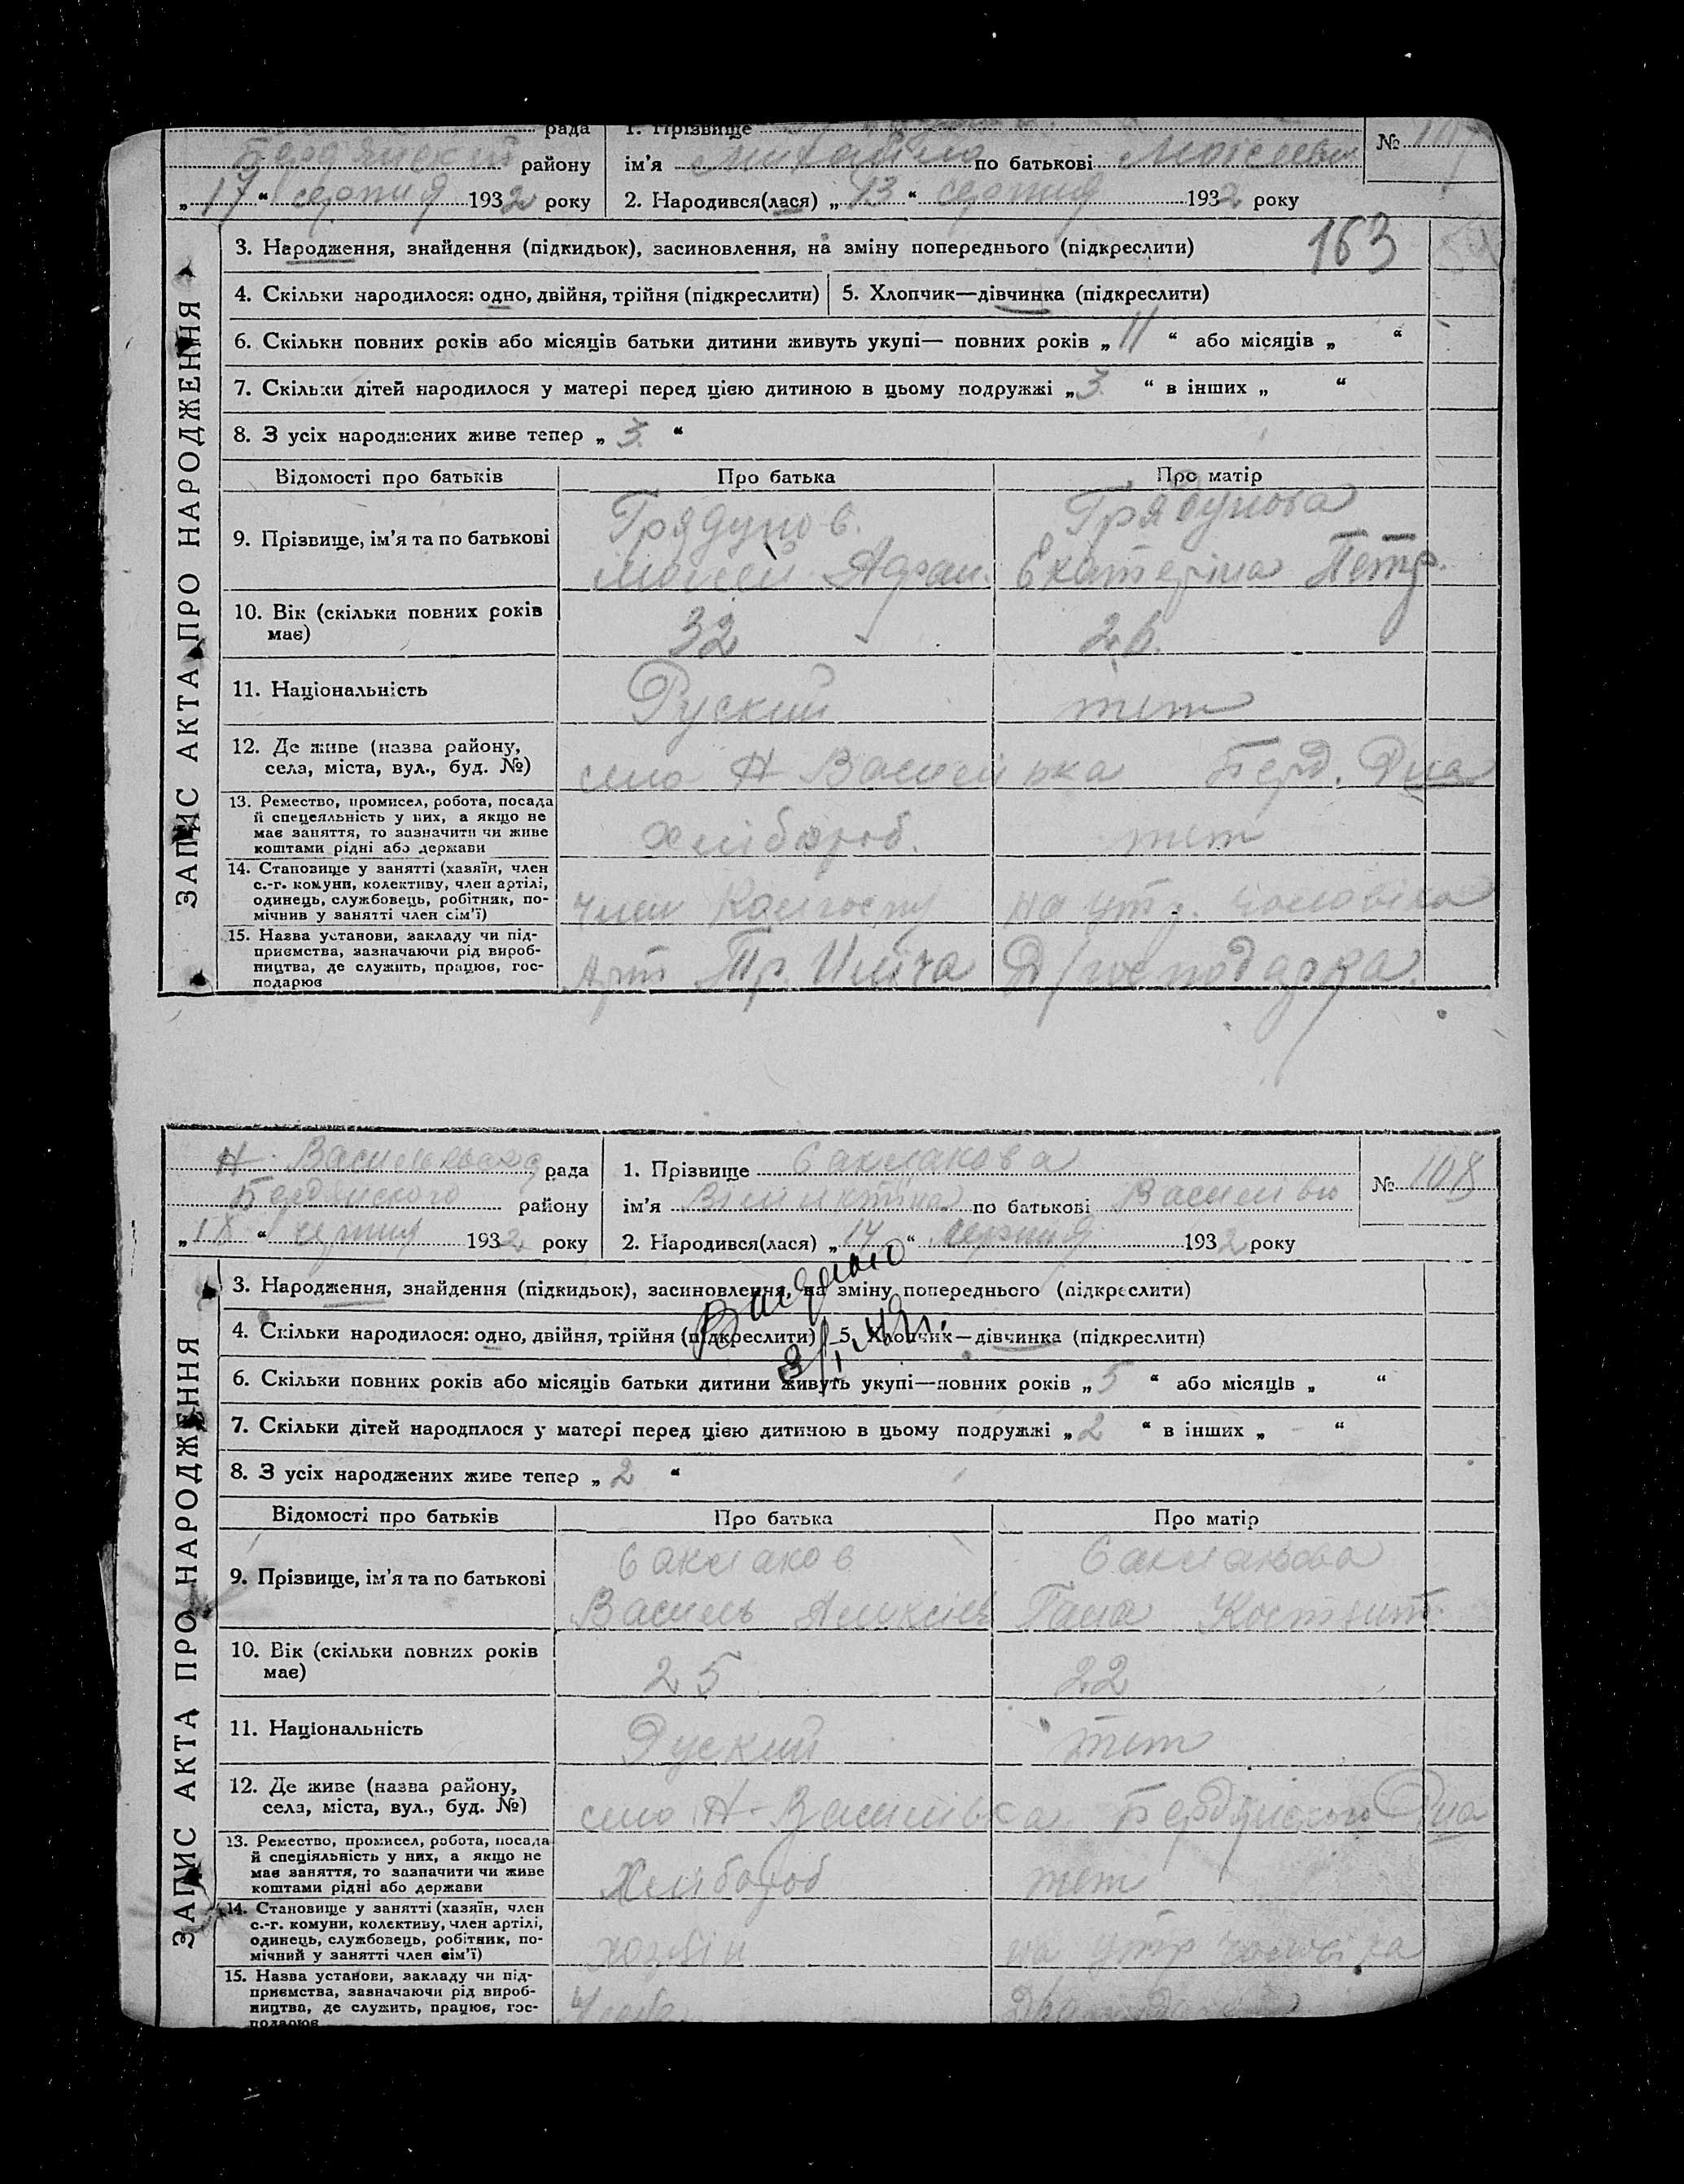 рада
1. Прізвище
№ 107
району
ім'я по батькові
„17“ серпня 1932 року
2. Народився(лася) „13“ серпня 1932 року
163
ЗАПИС АКТА ПРО НАРОДЖЕННЯ
3. Народження, знайдення (підкидьок), засиновлення, на зміну попереднього (підкреслити)
4. Скільки народилося: одно, двійня, трійня (підкреслити)
5. Хлопчик—дівчинка (підкреслити)
6. Скільки повних років або місяців батьки дитини живуть укупі— повних років „11“ або місяців „ “
7. Скільки дітей народилося у матері перед цією дитиною в цьому подружжі „3“ в інших „ “
8. З усіх народжених живе тепер „3“
Відомості про батьків
Про батька
Про матір
9. Прізвище, ім'я та по батькові
Грядунов.
Моисей Афан.
Грядунова
Екатеріна Петр.
10. Вік (скільки повних років
має)
32
26.
11. Національність
Руский
теж
12. Де живе (назва району,
села, міста, вул., буд. №)
село Н Василівка Берд. Р-на
13. Ремество, промисел, робота, посада
й спецеяльність у них, а якщо не
має заняття, то зазначити чи живе
коштами рідні або держави
Хлібороб.
теж
14. Становище у занятті (хазяїн, член
с.-г. комуни, колективу, член артілі,
одинець, службовець, робітник, по-
мічнив у занятті член сім'ї)
член Колгоспу
на утр. чоловіка
15. Назва установи, закладу чи під-
приємства, зазначаючи рід вироб-
ництва, де служить, працює, гос-
подарює
Арт Іліча
Д/господарка.
Н. Васильевская рада
1. Прізвище Саклакова
№ 108
Бердянского району
ім'я по батькові Василівн
серпня 1932 року
2. Народився(лася) „14“ серпня 1932 року
ЗАПИС АКТА ПРО НАРОДЖЕННЯ
3. Народження, знайдення (підкидьок), засиновлення, на зміну попереднього (підкреслити)
Выдано
4. Скільки народилося: одно, двійня, трійня (підкреслити)
5. Хлопчик—дівчинка (підкреслити)
6. Скільки повних років або місяців батьки дитини живуть укупі—повних років „5“ або місяців „ “
7. Скільки дітей народилося у матері перед цією дитиною в цьому подружжі „2“ в інших „ - “
8. З усіх народжених живе тепер „2“
Відомості про батьків
Про батька
Про матір
9. Прізвище, ім'я та по батькові
Саклаков
Василь
Саклакова
Гана
10. Вік (скільки повних років
має)
25
22
11. Національність
Руский
теж
12. Де живе (назва району,
села, міста, вул., буд. №)
село Н-Василівка Бердянского Р-на
13. Ремество, промисел, робота, посада
й спеціяльність у них, а якщо не
має заняття, то зазначити чи живе
коштами рідні або держави
Хлібороб
теж
14. Становище у занятті (хазяїн, член
с.-г. комуни, колективу, член артілі,
одинець, службовець, робітник, по-
мічний у занятті член сім'ї)
хозяін
на утр чоловіка
15. Назва установи, закладу чи під-
приємства, зазначаючи рід вироб-
ництва, де служить, працює, гос-
подарює